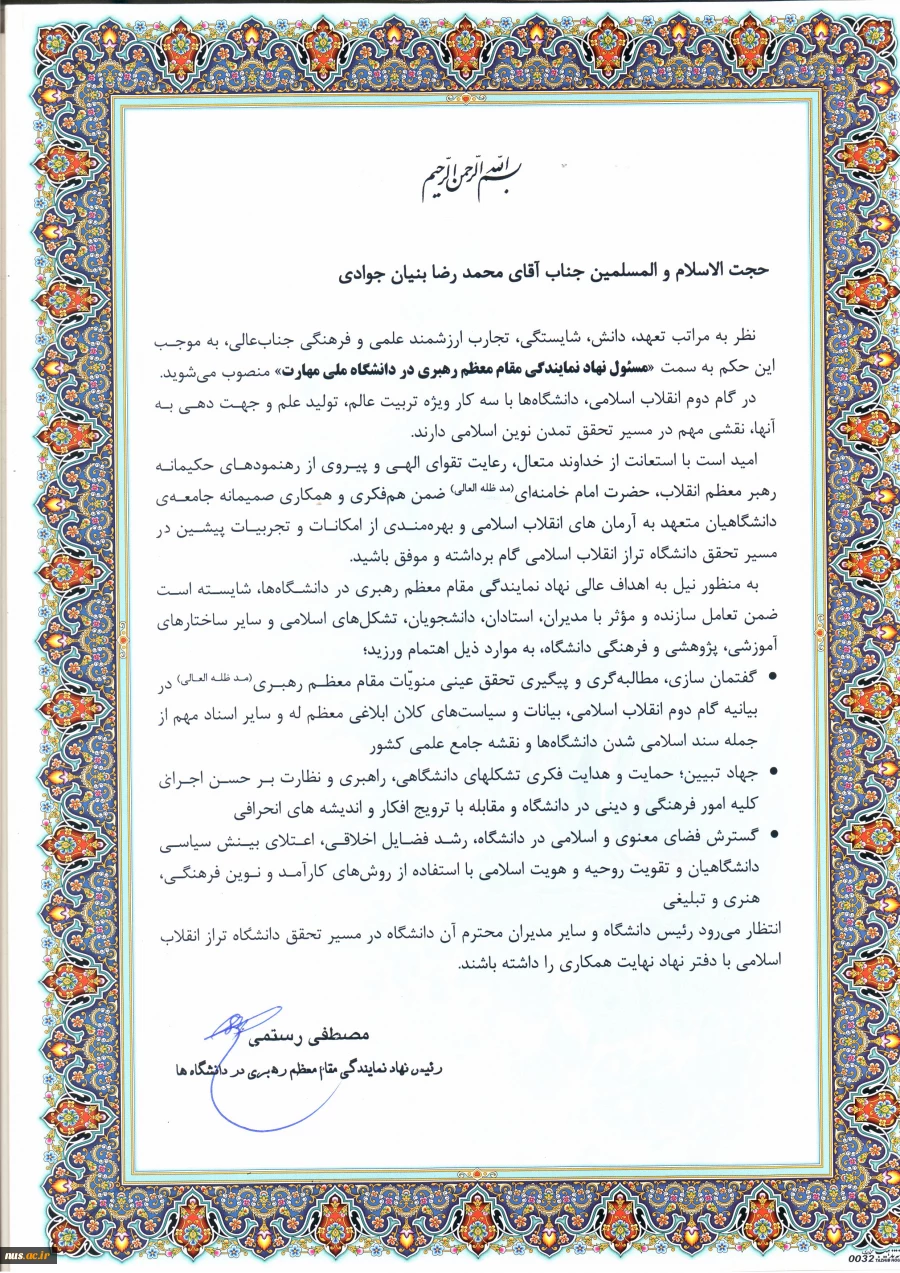 بسم الله الرحمن الرحیم
حجت الاسلام و المسلمین جناب آقای محمد رضا بنیان جوادی
نظر به مراتب تعهد، دانش، شایستگی، تجارب ارزشمند علمی و فرهنگی جناب‌عالی، به موجب
این حکم به سمت «مسئول نهاد نمایندگی مقام معظم رهبری در دانشگاه ملی مهارت» منصوب می‌شوید.
در گام دوم انقلاب اسلامی، دانشگاه‌ها با سه کار ویژه تربیت عالم، تولید علم و جهت دهی به
آنها، نقشی مهم در مسیر تحقق تمدن نوین اسلامی دارند.
امید است با استعانت از خداوند متعال، رعایت تقوای الهی و پیروی از رهنمودهای حکیمانه
رهبر معظم انقلاب، حضرت امام خامنه‌ای(مد ظله العالی) ضمن هم‌فکری و همکاری صمیمانه جامعه‌ی
دانشگاهیان متعهد به آرمان های انقلاب اسلامی و بهره‌مندی از امکانات و تجربیات پیشین در
مسیر تحقق دانشگاه تراز انقلاب اسلامی گام برداشته و موفق باشید.
به منظور نیل به اهداف عالی نهاد نمایندگی مقام معظم رهبری در دانشگاه‌ها، شایسته است
ضمن تعامل سازنده و مؤثر با مدیران، استادان، دانشجویان، تشکل‌های اسلامی و سایر ساختارهای
آموزشی، پژوهشی و فرهنگی دانشگاه، به موارد ذیل اهتمام ورزید؛
• گفتمان سازی، مطالبه‌گری و پیگیری تحقق عینی منویّات مقام معظم رهبری(مد ظله العالی) در
بیانیه گام دوم انقلاب اسلامی، بیانات و سیاست‌های کلان ابلاغی معظم له و سایر اسناد مهم از
جمله سند اسلامی شدن دانشگاه‌ها و نقشه جامع علمی کشور
• جهاد تبیین؛ حمایت و هدایت فکری تشکلهای دانشگاهی، راهبری و نظارت بر حسن اجرای
کلیه امور فرهنگی و دینی در دانشگاه و مقابله با ترویج افکار و اندیشه های انحرافی
• گسترش فضای معنوی و اسلامی در دانشگاه، رشد فضایل اخلاقی، اعتلای بینش سیاسی
دانشگاهیان و تقویت روحیه و هویت اسلامی با استفاده از روش‌های کارآمد و نوین فرهنگی،
هنری و تبلیغی
انتظار می‌رود رئیس دانشگاه و سایر مدیران محترم آن دانشگاه در مسیر تحقق دانشگاه تراز انقلاب
اسلامی با دفتر نهاد نهایت همکاری را داشته باشند.
مصطفی رستمی
رئیس نهاد نمایندگی مقام معظم رهبری در دانشگاه ها
nus.ac.ir
0032